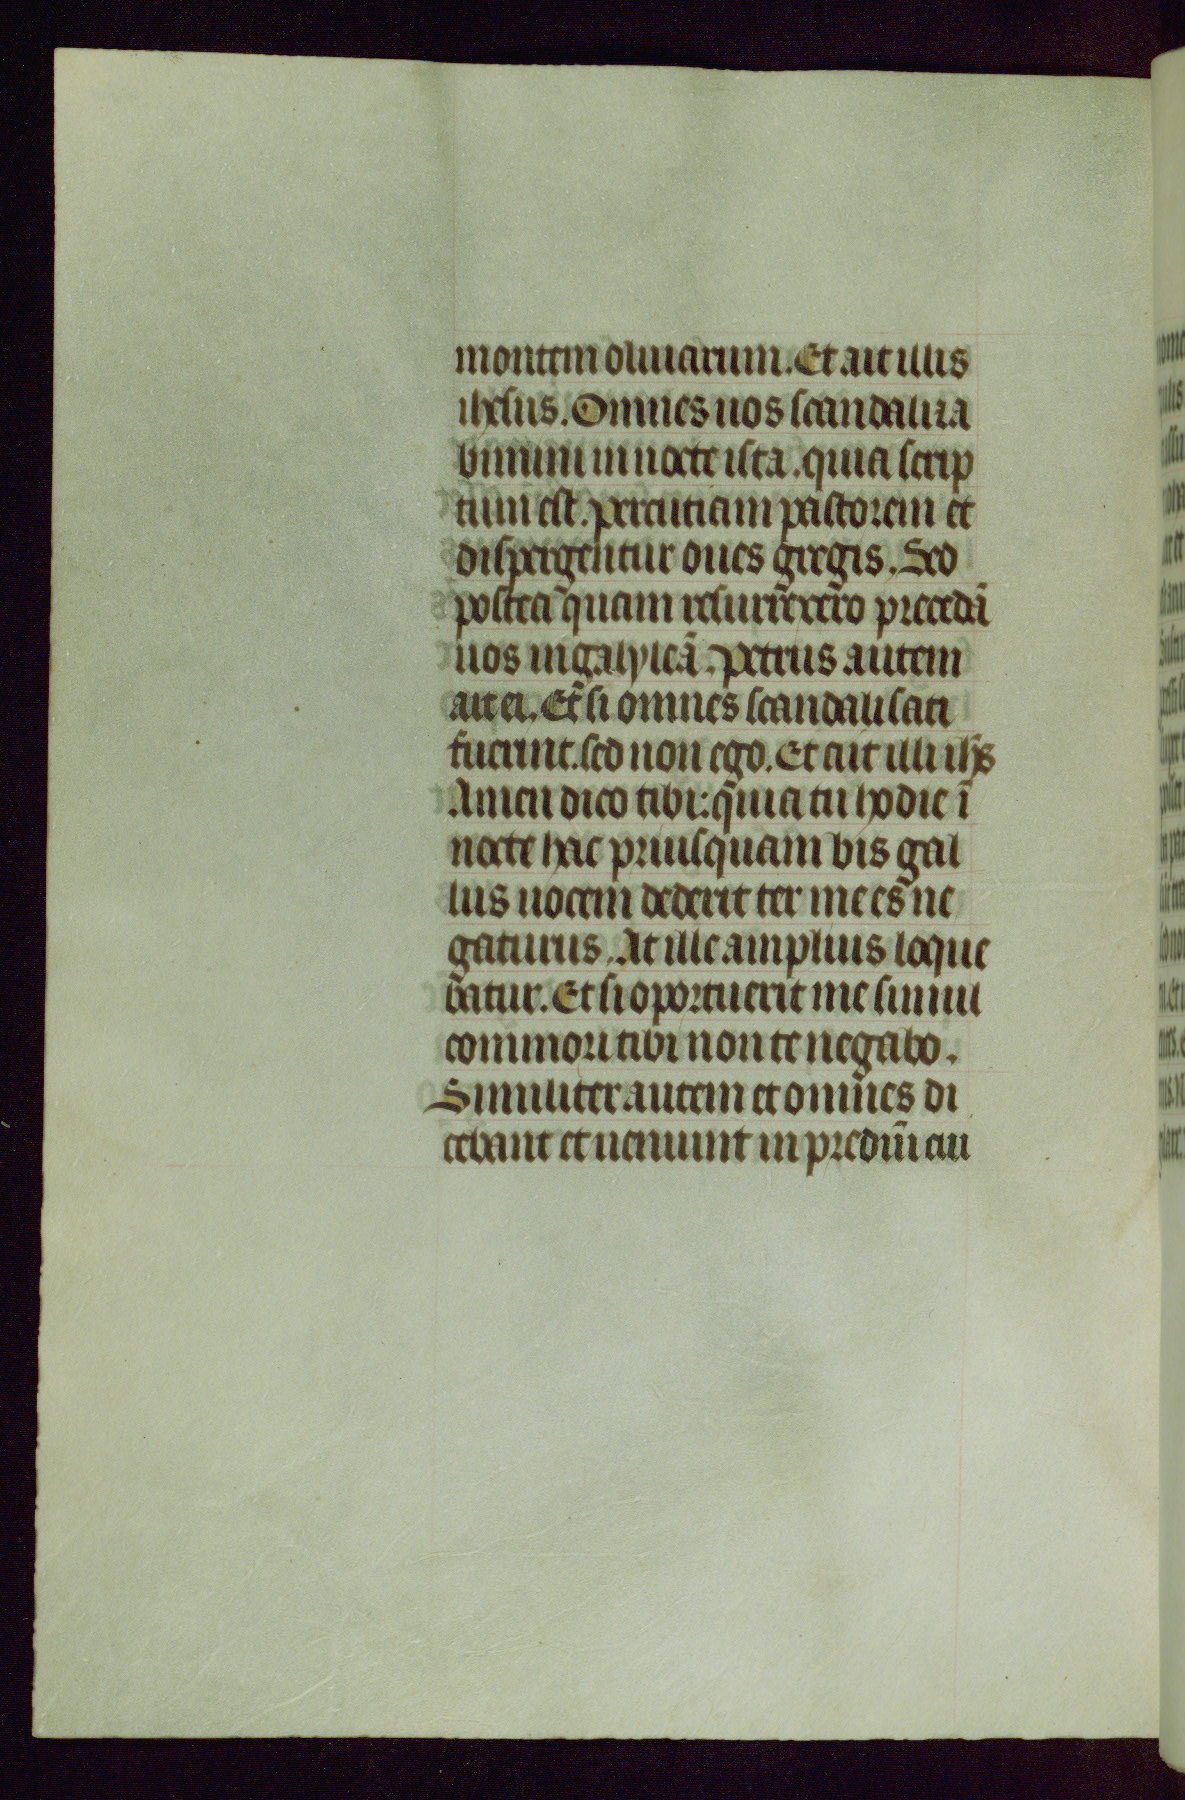 montem oliuarum. Et ait illis
ihesus. Omnes uos scandaliza
bimini in nocte ista. quia scrip
tum est. percutiam pastorem et
dispergentur oues gregis. Sed
postea quam resurrexero precedā
uos in galyleā. Petrus autem
ait ei. Et si omnes scandalisati
fuerint. sed non ego. Et ait illi ihs
Amen dico tibi: quia tu hodie ī
nocte hac priusquam bis gal
lus uocem dederit ter me es ne
gaturus. At ille amplius loque
batur. Et si oportuerit me simul
commori tibi non te negabo.
Similiter autem et omnes di
cebant et ueniunt in predium cui